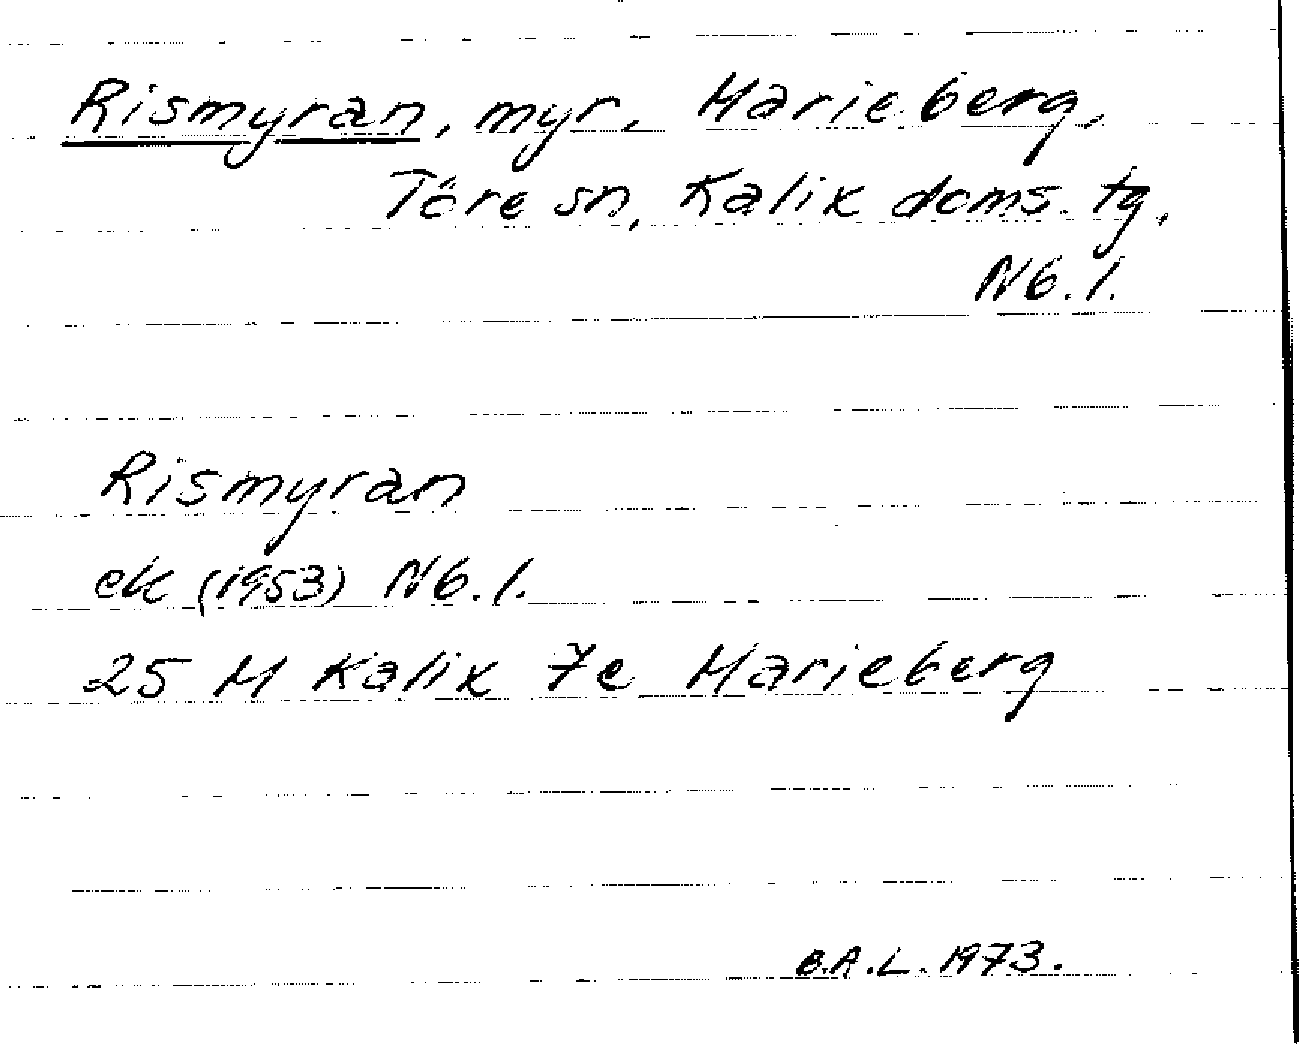 Rismyran, myr, Marieberg,
Töre sn, Kalix doms. tg,
Nb. l.
Rismyran
ek (1953) Nb. l.
25 M Kalix 7e Marieberg
B.A.L. 1973.